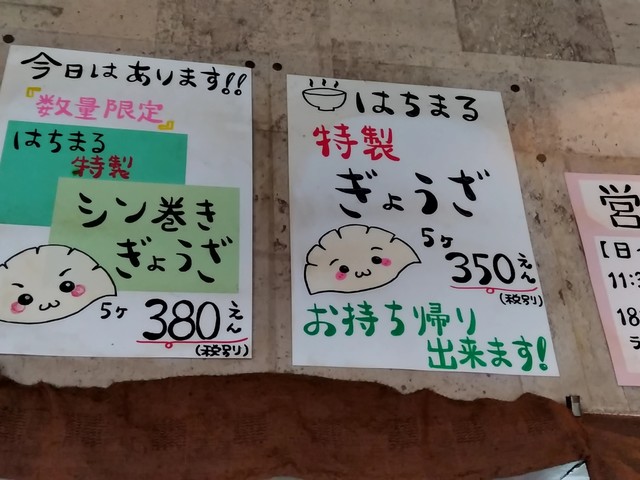 今日はあります!!
『数量限定』
はちまる
特製
シン巻き
ぎょうざ
5ヶ 380えん
(税別)
はちまる
特製
ぎょうざ
5ヶ 350えん
(税別)
お持ち帰り
出来ます!
営
【日
11:
18
ラ